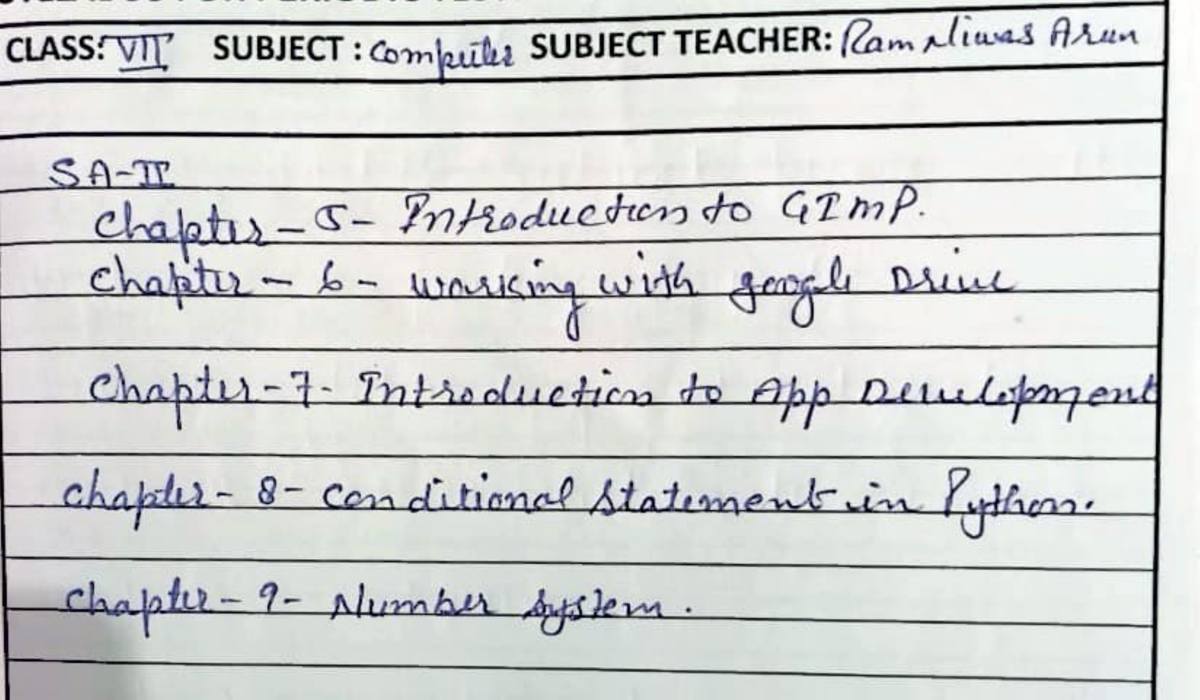 CLASS: VII SUBJECT : Computer SUBJECT TEACHER: Ram Niwas Arun
SA-II
Chapter - 5 - Introduction to GIMP.
Chapter - 6 - working with google Drive
Chapter - 7 - Introduction to App Development
chapter - 8 - Conditional Statement in Python.
chapter - 9 - Number System.